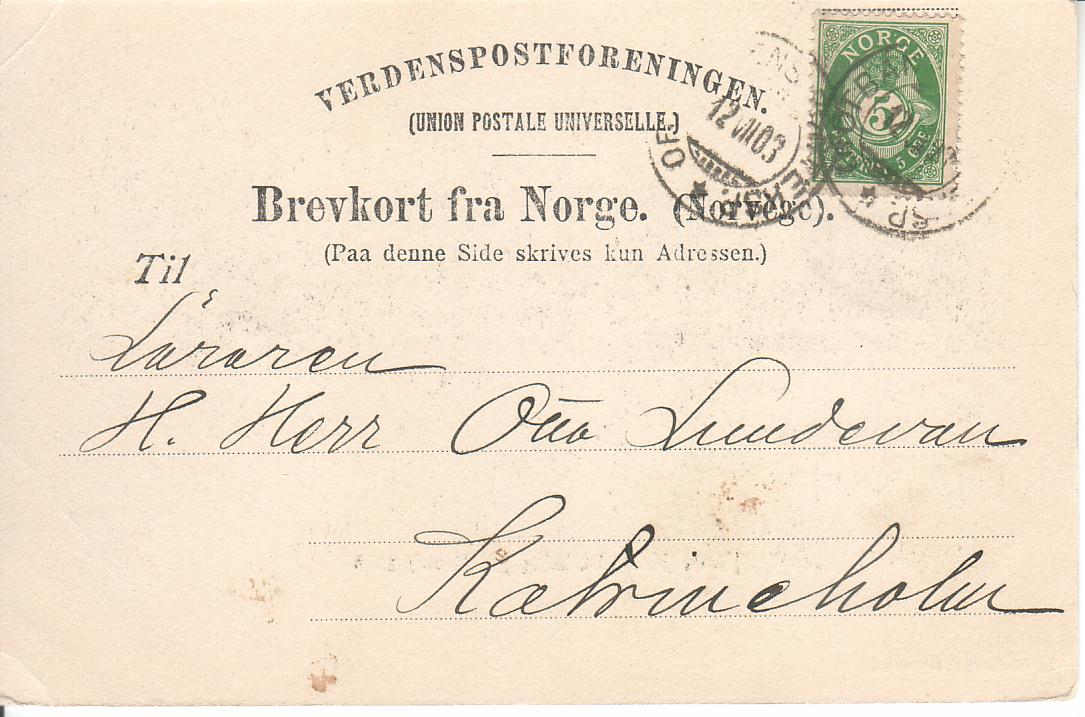 VERDENSPOSTFORENINGEN.
(UNION POSTALE UNIVERSELLE.)
NORGE
5
5 ØRE
12 VII 03
Brevkort fra Norge. (Norvege).
(Paa denne Side skrives kun Adressen.)
Til
Läraren
H. Herr Otto Lundevan
Katrineholm